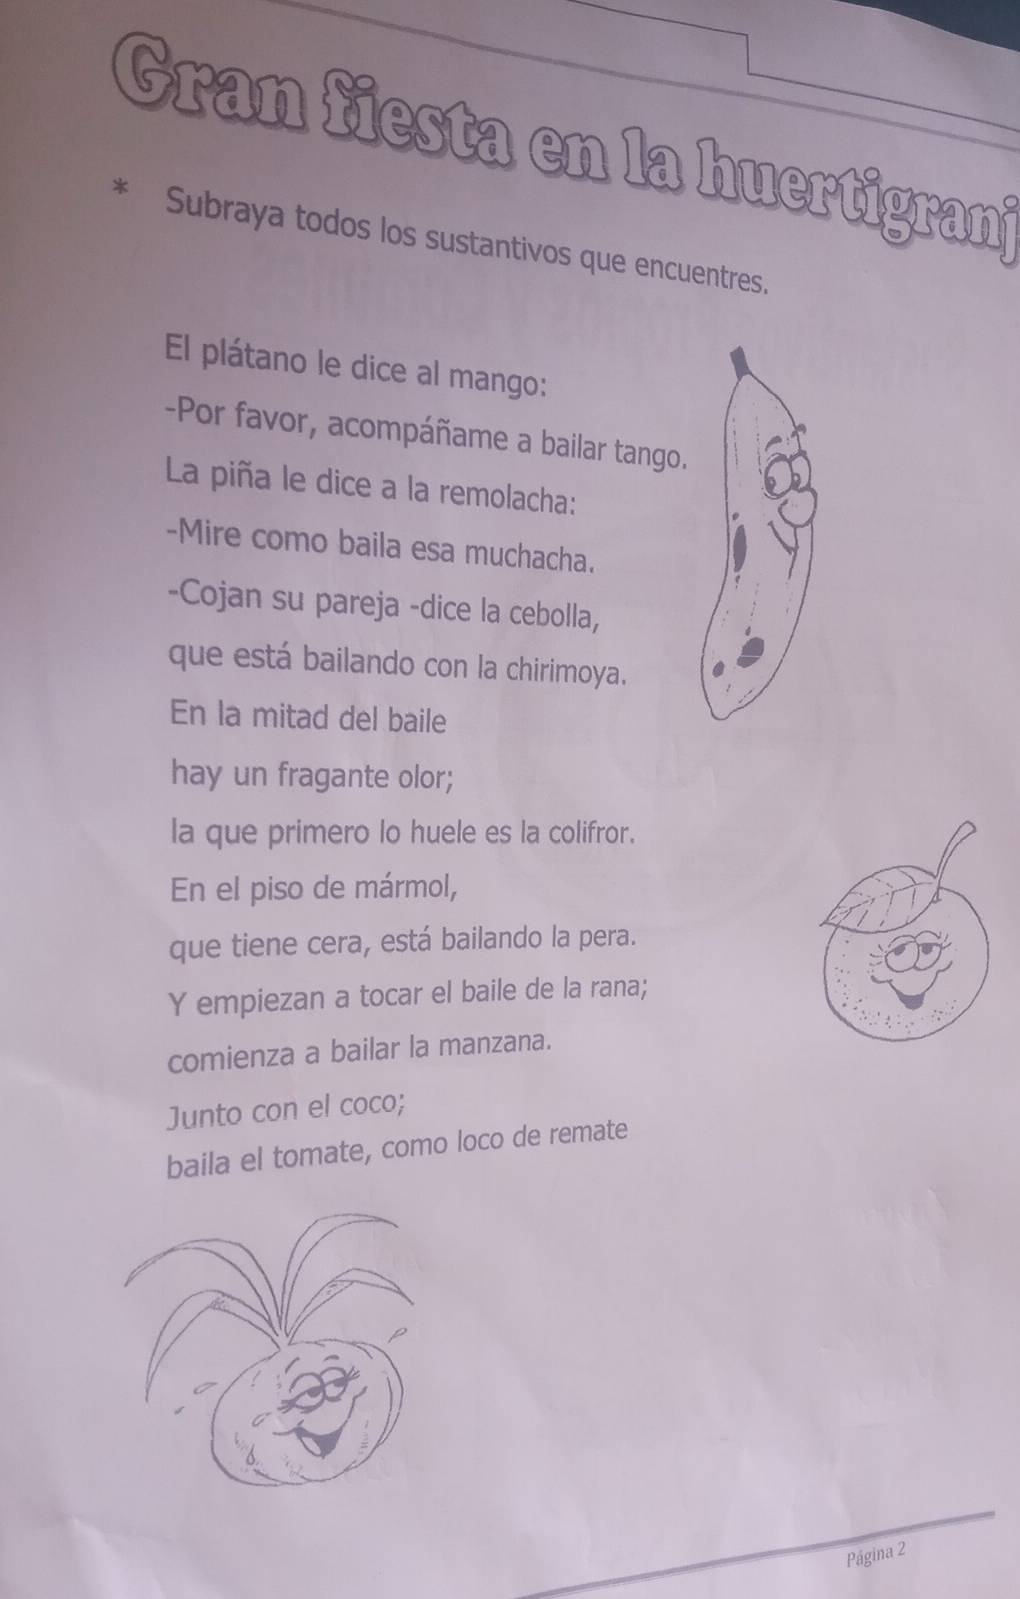 Gran fiesta en la huertigranj
* Subraya todos los sustantivos que encuentres.
El plátano le dice al mango:
-Por favor, acompáñame a bailar tango.
La piña le dice a la remolacha:
-Mire como baila esa muchacha.
-Cojan su pareja -dice la cebolla,
que está bailando con la chirimoya.
En la mitad del baile
hay un fragante olor;
la que primero lo huele es la colifror.
En el piso de mármol,
que tiene cera, está bailando la pera.
Y empiezan a tocar el baile de la rana;
comienza a bailar la manzana.
Junto con el coco;
baila el tomate, como loco de remate
Página 2